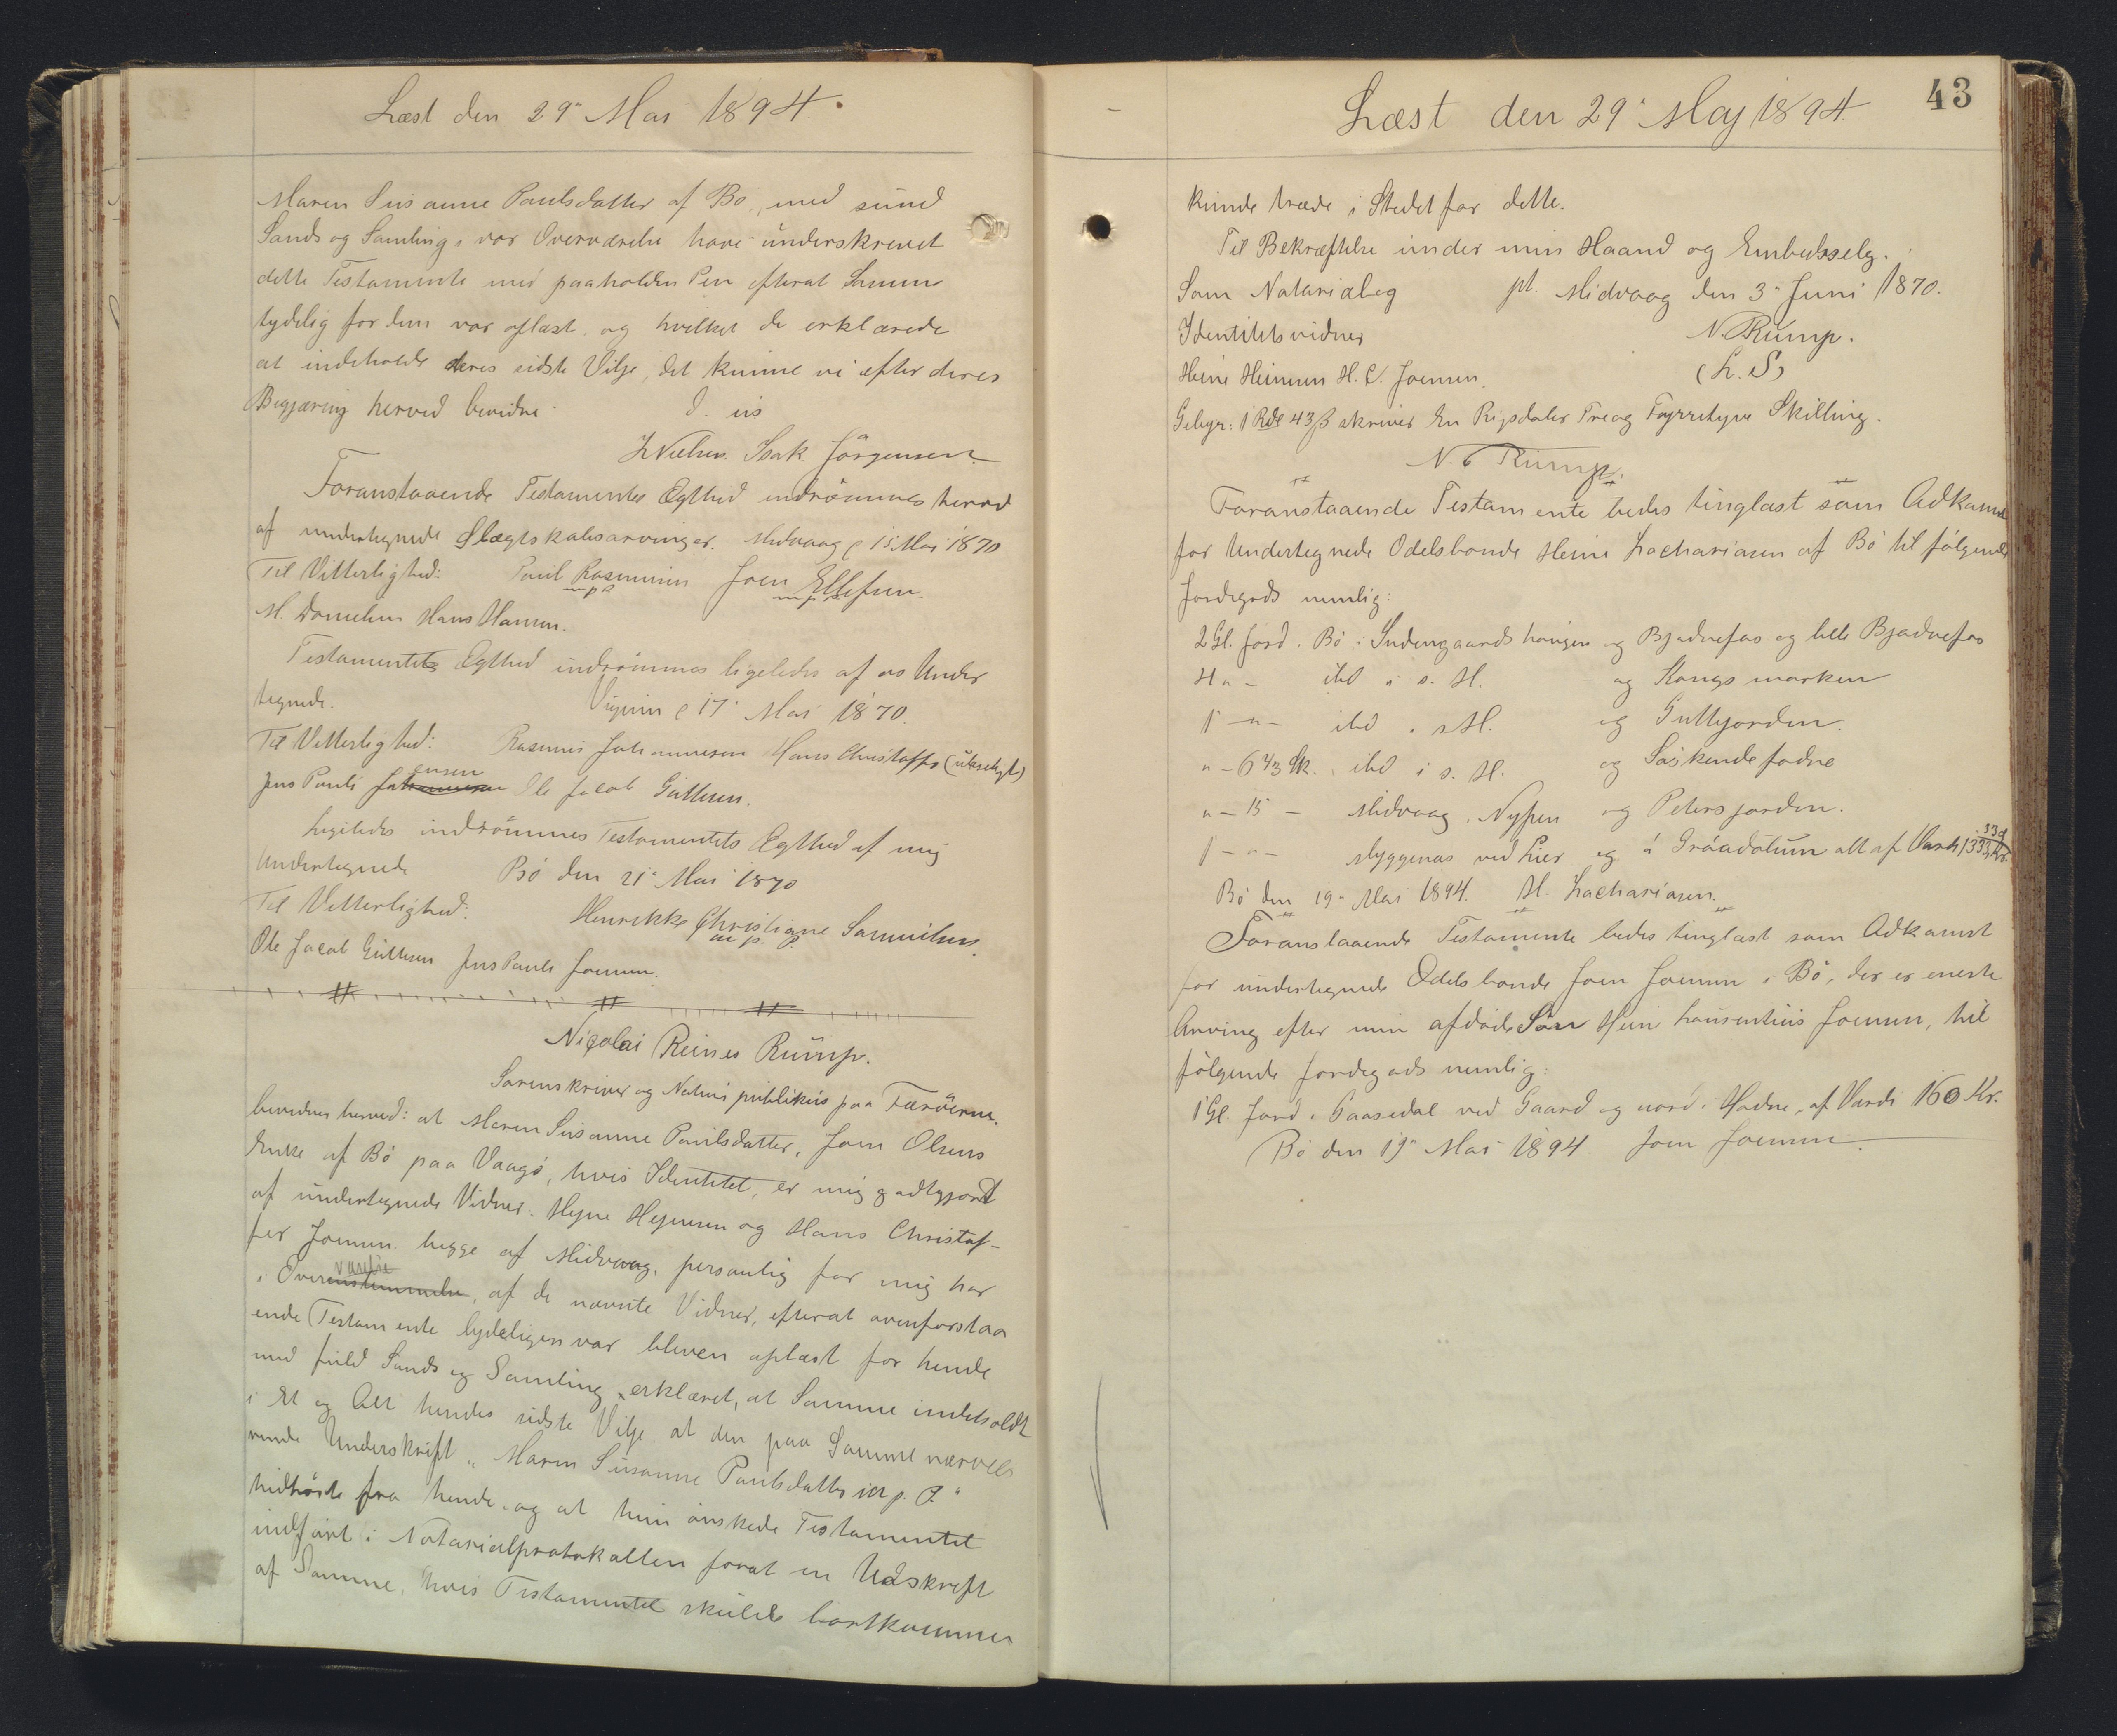 Læst den 29" Mai 1894.
Maren Susanne Paulsdatter af Bø, med sund
Sands og Samling i vor Overværelse have underskrevet
dette Testamente med paaholden Pen efterat Samme
tydelig for dem var oplæst og hvilket de erklærede
at indeholde deres sidste Vilje, det kunne vi efter deres
Begjæring herved bevidne. D. u s
Isak Jörgensen
Foranstaaende Testamentes Ægthed indrömmes herved
af undertegnede Slægtskabsarvinger. Midvaag d 15 Mai 1870
Til Vitterlighed: Paul Rasmussen Joen Ellefsen
m p P m p P
M. Danielsen Hans Hansen.
Testamentets Ægthed indrömmes ligeledes af os Under
tegnede. d 17" Mai 1870.
Til Vitterlighed: Rasmus Johannesen Hans Christoffer (ulæseligt)
Jens Pauli Johannesen ensen Ole Jacob Guttesen.
Ligeledes indrömmes Testamentets Ægthed af mig
Undertegnede Bö den 21" Mai 1870
Til Vitterlighed: Henrikke Christiane Samuelsen
m p. P.
Ole Jacob Guttesen Jens Pauli Joensen.
Nicolai Reines Rump.
Sorenskriver og Notarius publikus paa Færöerne.
bevidner herved: at Maren Susanne Paulsdatter, Joen Olsens
Enke af Bö paa Vaagö, hvis Identitet, er mig godtgjort
af undertegnede Vidner. Hejne Hejnesen og Hans Christof-
fer Joensen begge af Midvaag, personlig for mig har
værelse
i Overensstemmelse, af de nævnte Vidner, efterat ovenforstaa
ende Testamente lydeligen var bleven oplæst for hende
med fuld Sands og Samling erklæret, at Samme indeholdt
i Et og Alt hendes sidste Vilje at den paa Samme værvæ
rende Underskrift „Maren Susanne Paulsdatter m p. P."
hidhörte fra hende og at hun önskede Testamentet
indfört i Notarialprotokollen forat en Udskrift
af Samme, hvis Testamentet skulde bortkomme
43
Læst den 29" Maj 1894
kunde træde i Stedet for dette.
Til Bekræftelse under min Haand og Embedssegl.
Som Notarialseg pt. Midvaag den 3" Juni 1870.
Identitetsvidner N. Rump.
Heine Heinesen H. C. Joensen. (L. S)
Gebyr: 1 Rdl 43 ß skriver En Rigsdaler Treog Fyrretyve Skilling.
N. Rump.
Foranstaaende Testamente bedes tinglæst som Adkomst
for Undertegnede Odelsbonde Heine Zachariasen af Bö til fölgende
Jordegods nemlig:
2 Gl. Jord i Bö i Indengaards haugen og Bjadnefos og hele Bjadnefos
4 " - ibd i s. H. og Kongsmarken
1 - " - ibd i s H. og Guttejorden.
" - 6 4/3 Sk. ibd i s. H. og Söskendefodne
" - 15 - Midvaag, Nypen og Petersjorden.
1 - " - Myggenæs ved Lier og i Gráadölum alt af Værdi 1333 33/ Kr.
Bö den 19" Mai 1894. H. Zachariasen.
Foranstaaende Testamente bedes tinglæst som Adkomst
for undertegnede Odelsbonde Joen Joensen i Bö, der er eneste
Arving efter min afdöde Sön Hein Laurentius Joensen, til
fölgende Jordegods nemlig:
1 Gl. Jord i Gaasedal ved Gaard og nord i Hadne, af Værdi 160 Kr.
Bö den 19" Mai 1894 Joen Joensen